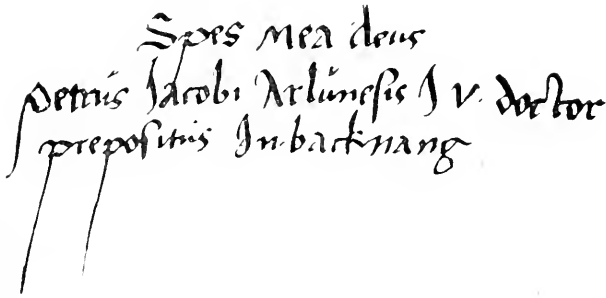 Spes mea deus
petrus Jacobi Arlunesis J v. doctor
prepositus In backnang